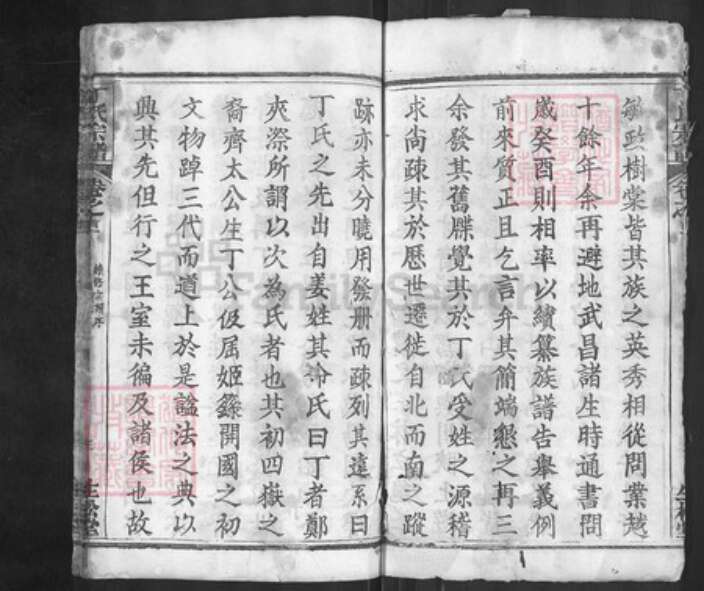 敏政樹棠皆其族之英秀相從問業越
十餘年余再避地武昌諸生時通書問
歲癸酉則相率以續纂族譜告舉義例
前來質正且乞言弁其簡端懇之再三
余發其舊牒覺其於丁氏受姓之源稽
求尚疎其於歷世遷徙自北而南之蹤
跡亦未分曉用發册而疎列其遠系曰
丁氏之先出自姜姓其冷氏曰丁者鄭
夾漈所謂以次為氏者也其初四嶽之
裔齊太公生丁公伋屆姬籙開國之初
文物踔三代而道上於是諡法之典以
興其先但行之王室未徧及諸侯也故
丁氏宗譜
卷之
生松堂
FamilySearch